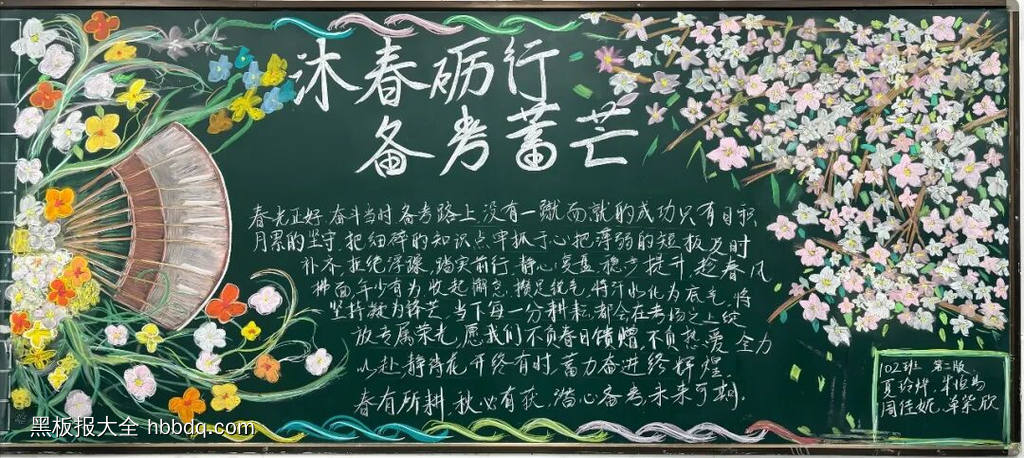 沐春砺行
备考蓄芒
春光正好,奋斗当时,备考路上,没有一蹴而就的成功只有日积
月累的坚守.把细碎的知识点牢抓于心把薄弱的短板及时
补齐,拒绝浮躁,踏实前行,静心复盘,稳步提升,趁春风
拂面,年少有为,收起懈怠,攒足锐气,将汗水化为底气,将
坚持凝为锋芒,当下每一分耕耘,都会在考场之上绽
放专属荣光,愿我们不负春日馈赠,不负热爱,全力
以赴,静待花开终有时,蓄力奋进终辉煌
春有所耕,秋必有获,潜心备考,未来可期.
102班 第二版
夏
周佳妮,
黑板报大全 hbbdq.com